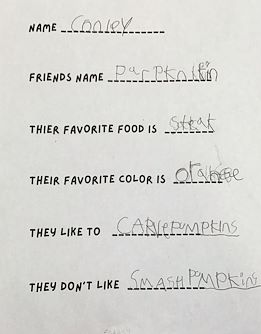 NAME Conley
FRIENDS NAME
THIER FAVORITE FOOD IS Steak
THEIR FAVORITE COLOR IS orange
THEY LIKE TO CARVE PUMPKINS
THEY DON'T LIKE SMASH PUMPKINS